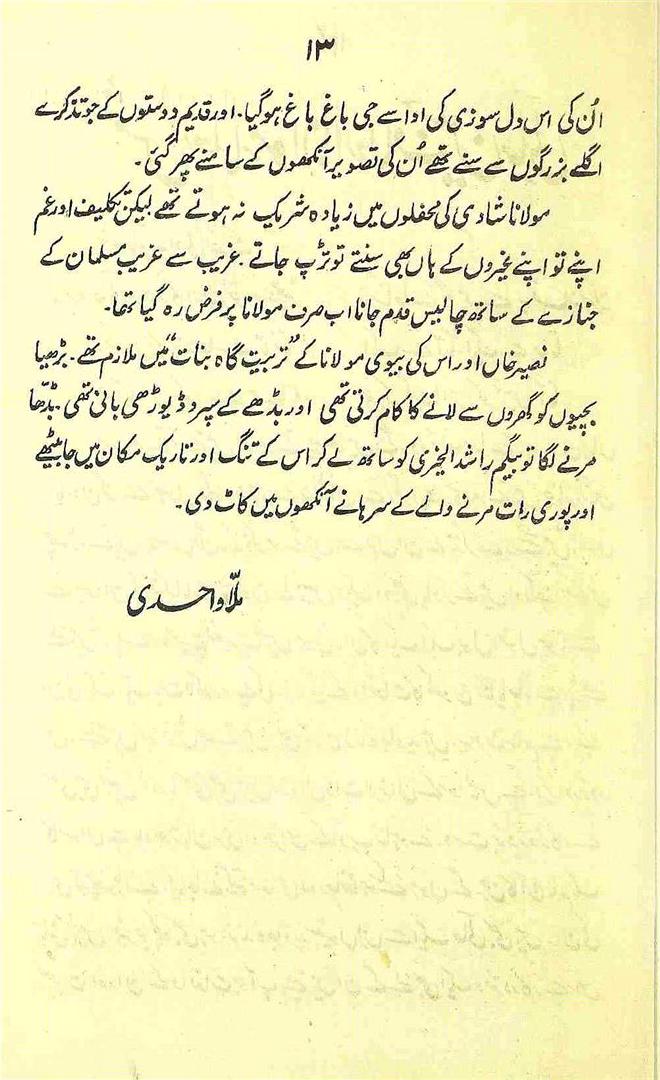 ۱۳
اُن کی اس دل سوزی کی ادا سے جی باغ باغ ہوگیا۔ اور قدیم دوستوں کے جو تذکرے
اگلے بزرگوں سے سنے تھے اُن کی تصویر آنکھوں کے سامنے پھر گئی۔
مولانا شادی کی محفلوں میں زیادہ شریک نہ ہوتے تھے لیکن تکلیف اور غم
اپنے تو اپنے غیروں کے ہاں بھی سنتے تو تڑپ جاتے۔ غریب سے غریب مسلمان کے
جنازے کے ساتھ چالیس قدم جانا اب صرف مولانا پر فرض رہ گیا تھا۔
نصیر خاں اور اس کی بیوی مولانا کے "تربیت گاہ بنات" میں ملازم تھے۔ بڑھیا
بچیوں کو گھروں سے لانے کا کام کرتی تھی اور بڈھے کے سپرد ڈیوڑھی بانی تھی۔ بڈھا
مرنے لگا تو بیگم راشد الخیری کو ساتھ لے کر اس کے تنگ اور تاریک مکان میں جا بیٹھے
اور پوری رات مرنے والے کے سرہانے آنکھوں میں کاٹ دی۔
ملّا واحدی